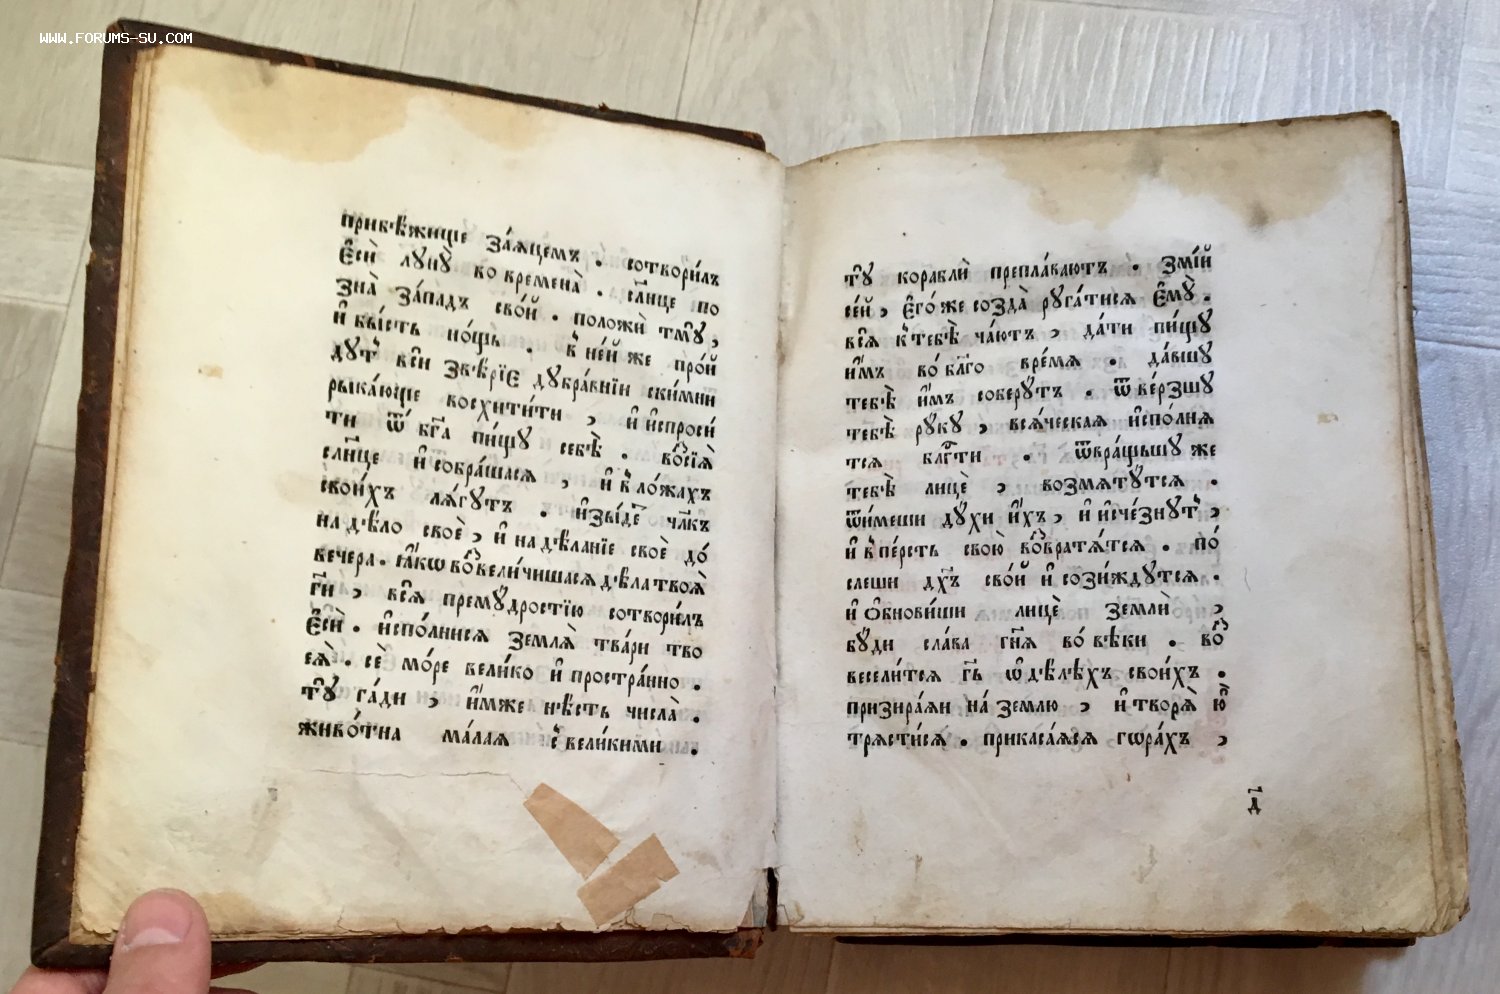 WWW.FORUMS-SU.COM
прибѣ́жище за́ѧцемъ . сотвори́лъ
є҆сѝ лꙋнꙋ̀ во временà . сл҃нце по
знà за́падъ сво́й . положѝ тмꙋ̀ ,
и҆ бы́сть но́щь . в̾ не́й же про́й
дꙋт̾ всѝ ѕвѣ́рїе дꙋбра́внїи ски́мни
рыка́юще восхити́ти , и҆ и҆спроси́
ти ѿ бг҃а пи́щꙋ себѣ̀ . возсїѧ̀
сл҃нце и҆ собра́шасѧ , и҆ в̾ ло́жахъ
свои́хъ лѧ́гꙋтъ . и҆зы́детъ чл҃къ
на дѣ́ло своѐ , и҆ на дѣ́ланїе своѐ до́
вечера . ꙗ҆́кѡ возвели́чишасѧ дѣ́ла твоѧ̀
гд҃и , всѧ̀ премꙋ́дростїю сотвори́лъ
є҆сѝ . и҆спо́лнисѧ землѧ̀ тва́ри тво
еѧ̀ . сѐ мо́ре вели́ко и҆ простра́нно .
тꙋ̀ га́ди , и҆́мже нѣ́сть числà .
живо́тна ма́лаѧ с̾ вели́кими .
тꙋ̀ кораблѝ препла́ваютъ . ѕмі́й
се́й , є҆го́ же создà рꙋга́тисѧ є҆мꙋ̀ .
всѧ̀ к̾ тебѣ̀ ча́ютъ , да́ти пи́щꙋ
и҆̀мъ во́ бл҃го вре́мѧ . да́вшꙋ
тебѣ̀ и҆̀мъ соберꙋ́тъ . ѿве́рзшꙋ
тебѣ̀ рꙋкꙋ , всѧ́ческаѧ и҆спо́лнѧ
тсѧ бл҃гости . ѿвра́щьшꙋ же
тебѣ̀ лицѐ , возмѧтꙋ́тсѧ .
ѿи́меши дꙋ́хи и҆́хъ , и҆ и҆сче́знꙋт̾ ,
и҆ в̾ пе́рсть свою̀ возвратѧ́тсѧ . по́
слеши дх҃ъ сво́й и҆ сози́ждꙋтсѧ .
и҆ ѻ҆бнови́ши лицѐ землѝ ,
бꙋ́ди сла́ва гн҃ѧ во́ вѣки . воз
весели́тсѧ гд҃ь ѡ҆ дѣ́лѣхъ свои́хъ .
призира́ѧи на́ землю , и҆ творѧ̀ ю҆̀
трѧсти́сѧ . прикаса́ѧсѧ гѡра́хъ ,
д҃